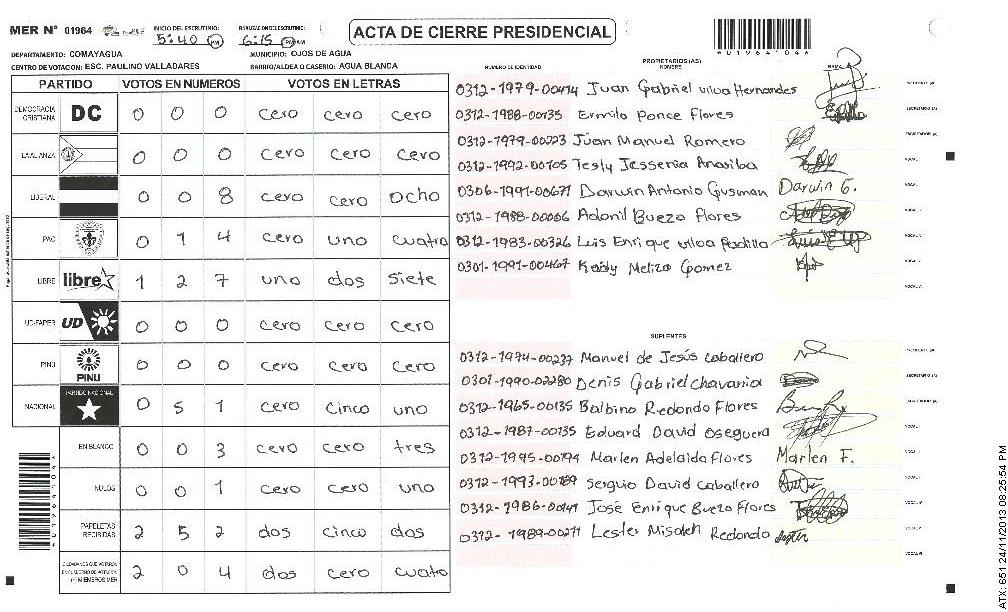 MER Nº 01964 INICIO DEL ESCRUTINIO: 5:40 PM FINALIZACION ESCRUTINIO: 6:15 PM
ACTA DE CIERRE PRESIDENCIAL
*01964104*
DEPARTAMENTO: COMAYAGUA MUNICIPIO: OJOS DE AGUA
CENTRO DE VOTACION: ESC. PAULINO VALLADARES BARRIO/ALDEA O CASERIO: AGUA BLANCA
PARTIDO VOTOS EN NUMEROS VOTOS EN LETRAS
DEMOCRACIA CRISTIANA DC 0 0 0 cero cero cero
LA ALIANZA 0 0 0 cero cero cero
LIBERAL 0 0 8 cero cero ocho
PAC 0 1 4 cero uno cuatro
LIBRE libre 1 2 7 uno dos siete
UD-FAPER UD 0 0 0 cero cero cero
PINU PINU 0 0 0 cero cero cero
NACIONAL PARTIDO NACIONAL 0 5 1 cero cinco uno
EN BLANCO 0 0 3 cero cero tres
NULOS 0 0 1 cero cero uno
PAPELETAS RECIBIDAS 2 5 2 dos cinco dos
CIUDADANOS QUE VOTARON EN CUADERNO DE VOTACION (+) MIEMBROS MER 2 0 4 dos cero cuato
*01964104*
PROPIETARIOS (AS)
NUMERO DE IDENTIDAD NOMBRE FIRMA
0312-1979-00414 Juan Gabriel ulloa Hernandes PRESIDENTE (A)
0312-1988-00135 Ermilo Ponce Flores SECRETARIO (A)
0312-1979-00223 Juan Manuel Romero ESCRUTADOR (A)
0312-1992-00105 Tesly Jessenia VOCAL I
0306-1991-00671 Darwin Antonio Gusman Darwin G. VOCAL
0312-1988-00006 Adonil Buezo Flores VOCAL
0312-1983-00326 Luis Enrique ulloa Padilla VOCAL IV
0301-1991-00467 Keidy Meliza Gomez VOCAL V
VOCAL VI
SUPLENTES
0312-1974-00237 Manuel de Jesús caballero PRESIDENTE (A)
0301-1990-02280 Denis Gabriel chavarria SECRETARIO (A)
0312-1965-00135 Balbino Redondo Flores ESCRUTADOR (A)
0312-1987-00135 Eduard David oseguera VOCAL I
0312-1995-00194 Marlen Adelaida Flores Marlen F. VOCAL
0312-1993-00189 Sergio David caballero VOCAL
0312-1986-00141 José Enrique Buezo Flores VOCAL IV
0312-1989-00271 Lester Misaleh Redondo VOCAL V
VOCAL VI
ATX: 651 24/11/2013 08:25:54 PM